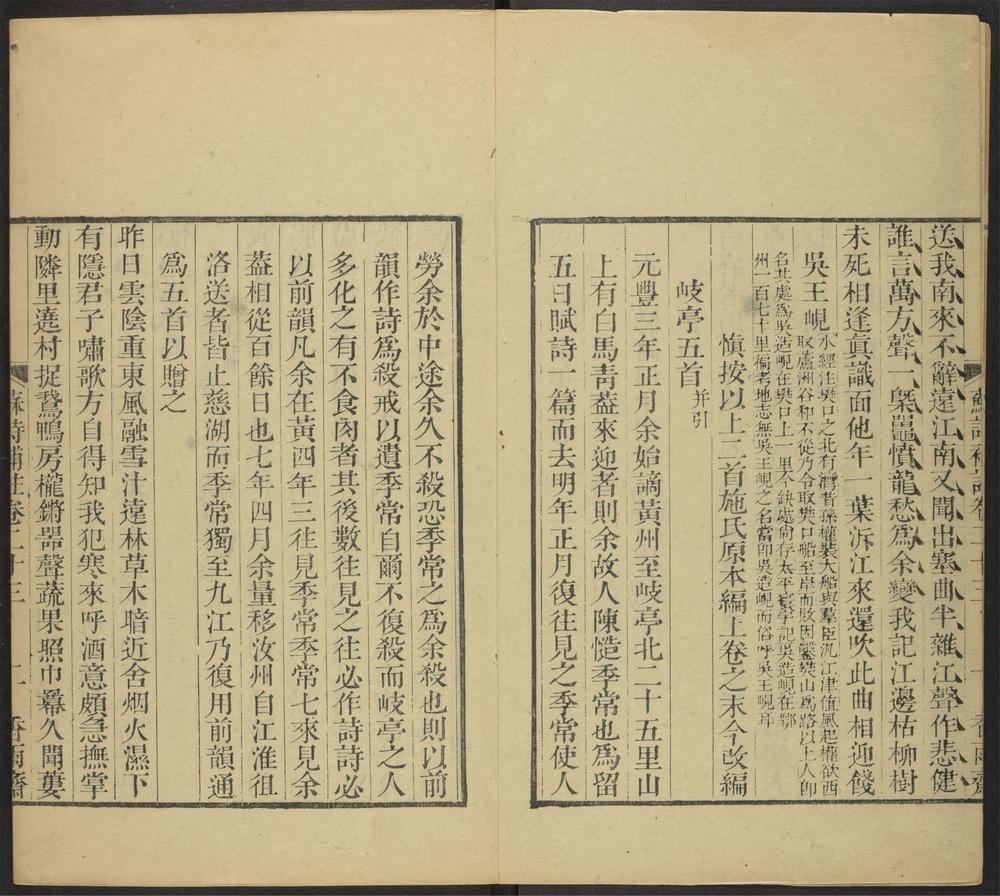 蘇詩補註卷二十三
香雨齋
送我南來不辭遠江南又聞出塞曲半雜江聲作悲健
誰言萬方聲一槩鼉憤龍愁爲余變我記江邊枯柳樹
未死相逢眞識面他年一葉泝江來還吹此曲相迎餞
吳王峴水經注樊口之北有灣昔孫權裝大船與羣臣泛江津値風起權欲西
取蘆洲谷利不從乃令取樊口船至岸而敗因鑿樊山爲路以上人卽
名其處爲吳造峴在樊口上一里今缺處尙存太平寰宇記吳造峴在鄂
州一百七十里徧考地志無吳王峴之名當卽吳造峴而俗呼吳王峴耳
愼按以上二首施氏原本編上卷之末今改編
岐亭五首并引
元豐三年正月余始謫黃州至岐亭北二十五里山
上有白馬靑葢來迎者則余故人陳慥季常也爲留
五日賦詩一篇而去明年正月復往見之季常使人
勞余於中途余久不殺恐季常之爲余殺也則以前
韻作詩爲殺戒以遺季常自爾不復殺而岐亭之人
多化之有不食肉者其後數往見之往必作詩詩必
以前韻凡余在黃四年三往見季常季常七來見余
葢相從百餘日也七年四月余量移汝州自江淮徂
洛送者皆止慈湖而季常獨至九江乃復用前韻通
爲五首以贈之
昨日雲陰重東風融雪汁遠林草木暗近舍烟火濕下
有隱君子嘯歌方自得知我犯寒來呼酒意頗急撫掌
動隣里遶村捉鵞鴨房櫳鏘器聲蔬果照巾羃久聞蔞
蘇詩補註卷二十三
二
香雨齋